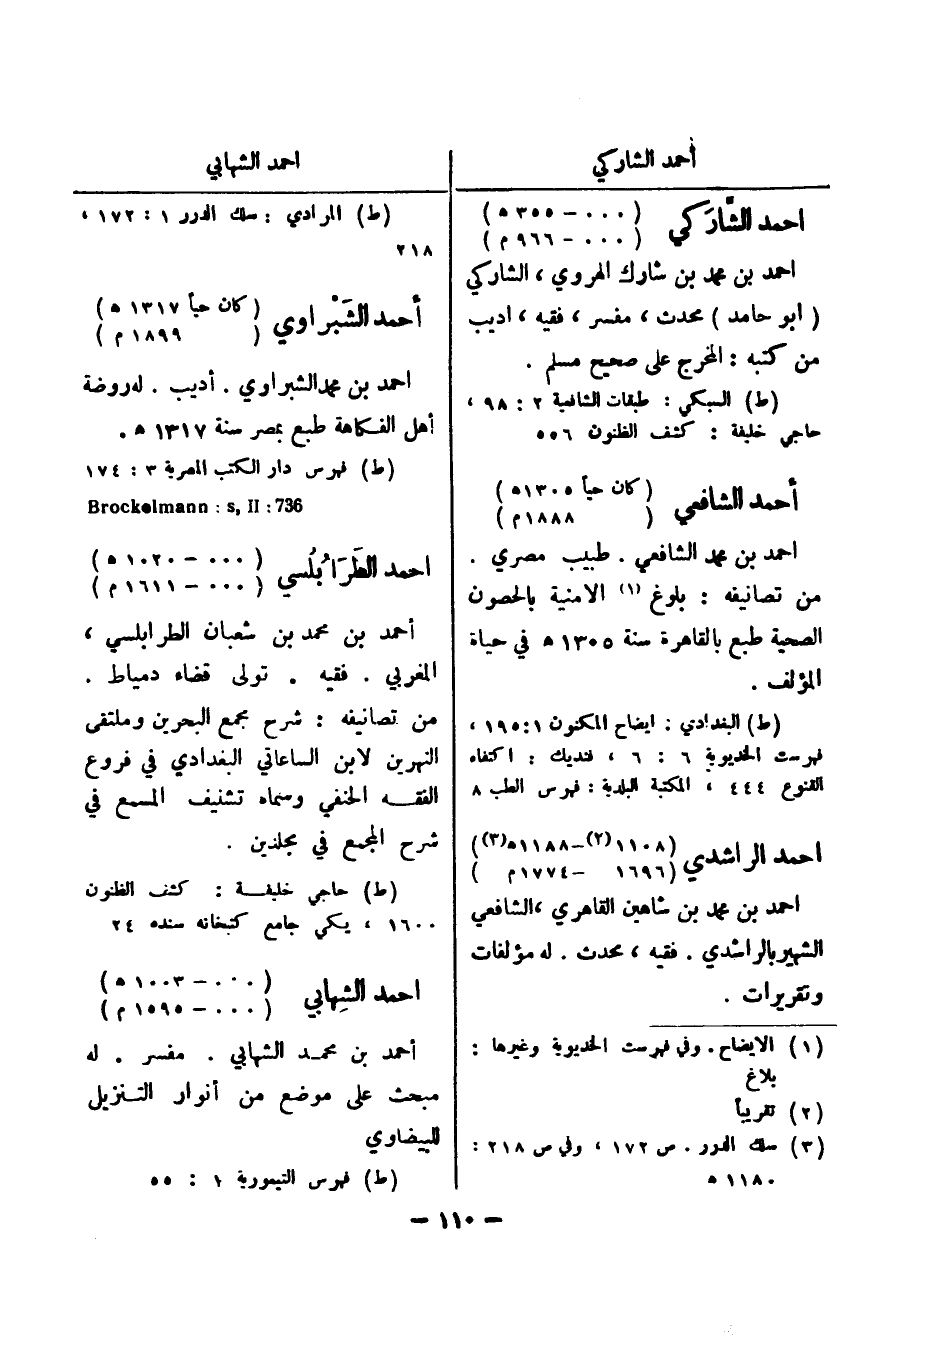 أحمد الشاركي
احمد الشَّارَكي
( ٠٠٠ – ٣٥٥ ه )
( ٠٠٠ – ٩٦٦ م )
احمد بن محمد بن شارك الهروي ، الشاركي
( ابو حامد ) محدث ، مفسر ، فقيه ، اديب
من كتبه : المخرج على صحيح مسلم .
(ط) السبكي : طبقات الشافعية ٢ : ٩٨ ،
حاجي خليفة : كشف الظنون ٥٥٦
أحمد الشافعي
( كان حياً ١٣٠٥ه )
( ١٨٨٨م )
احمد بن محمد الشافعي . طبيب مصري .
من تصانيفه : بلوغ (١) الامنية بالحصون
الصحية طبع بالقاهرة سنة ١٣٠٥ ه في حياة
المؤلف .
(ط) البغدادي : ايضاح المكنون ١ : ١٩٥ ،
فهرست الخديوية ٦ : ٦ ، فنديك : اكتفاء
القنوع ٤٤٤ ، المكتبة البلدية : فهرس الطب ٨
احمد الراشدي
( ١١٠٨ (٢) – ١١٨٨ه (٣) )
( ١٦٩٦ – ١٧٧٤م )
احمد بن محمد بن شاهين القاهري ، الشافعي
الشهير بالراشدي . فقيه ، محدث . له مؤلفات
وتقريرات .
(١) الايضاح . وفي فهرست الخديوية وغيرها :
بلاغ
(٢) تقريباً
(٣) سلك الدرر . ص ١٧٢ ، وفي ص ٢١٨ :
١١٨٠ ه
احمد الشهابي
(ط) المرادي : سلك الدرر ١ : ١٧٢ ،
٢١٨
أحمد الشَبْراوي
( كان حياً ١٣١٧ ه )
( ١٨٩٩ م )
احمد بن محمد الشبراوي . أديب . له روضة
أهل الفكاهة طبع بمصر سنة ١٣١٧ ه .
(ط) فهرس دار الكتب المصرية ٣ : ١٧٤
Brockelmann : s, II : 736
احمد الطَرَابُلُسي
( ٠٠٠ – ١٠٢٠ ه )
( ٠٠٠ – ١٦١١ م )
أحمد بن محمد بن شعبان الطرابلسي ،
المغربي . فقيه . تولى قضاء دمياط .
من تصانيفه : شرح مجمع البحرين وملتقى
النهرين لابن الساعاتي البغدادي في فروع
الفقه الحنفي وسماه تشنيف المسمع في
شرح المجمع في مجلدين .
(ط) حاجي خليفة : كشف الظنون
١٦٠٠ ، يكي جامع كتبخانه سنده ٢٤
احمد الشِهابي
( ٠٠٠ – ١٠٠٣ ه )
( ٠٠٠ – ١٥٩٥ م )
أحمد بن محمد الشهابي . مفسر . له
مبحث على موضع من أنوار التنزيل
للبيضاوي
(ط) فهرس التيمورية ١ : ٥٥
– ١١٠ –